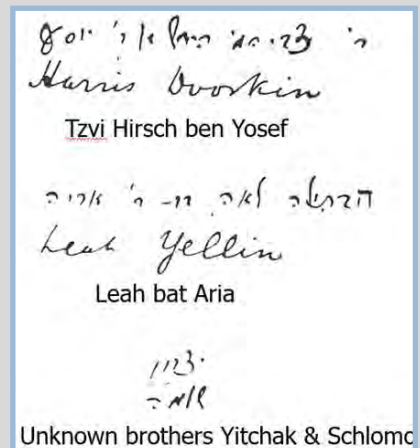 ר' צבי בן ר' יוסף
Harris Dvorkin
Tzvi Hirsch ben Yosef
הבתולה לאה בת ר' אריה
Leah Yellin
Leah bat Aria
שלמה
Unknown brothers Yitchak & Schlomo